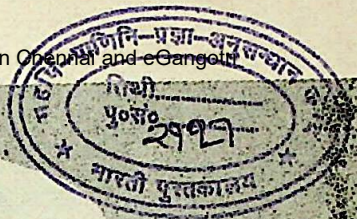 n Chennai and eGangotri
पाणिनि-प्रज्ञा-अनुसन्धान
तिथी
पु०सं० २११७
भारती पुस्तकालय